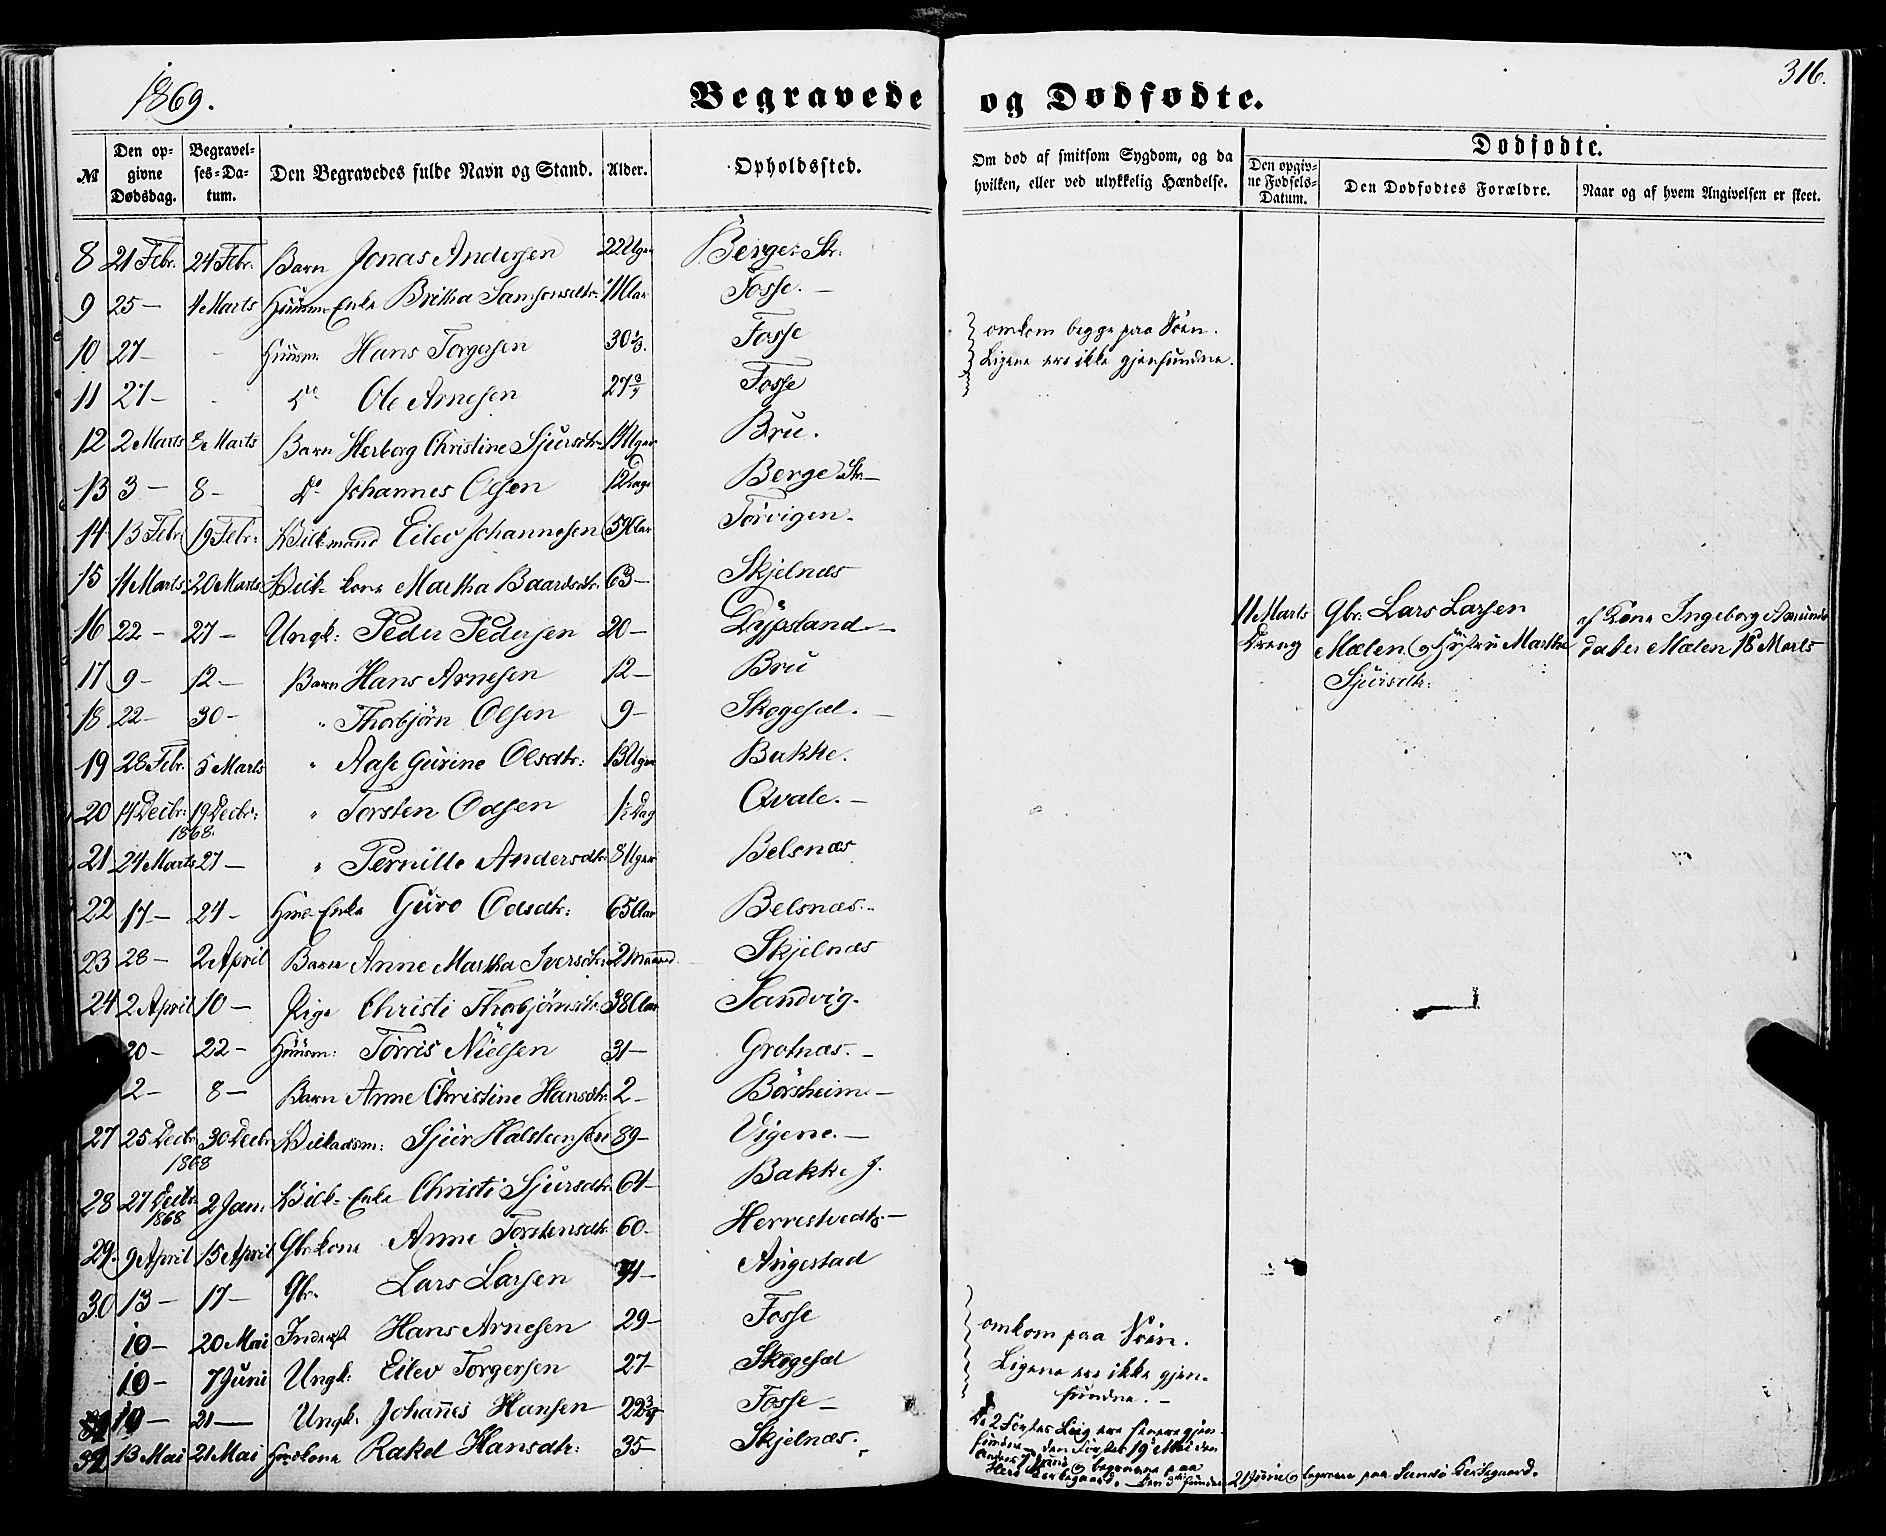 1869.
Begravede og Dødfødte.
316.
№
Den opgivne Dødsdag.
Begravelses-Datum.
Den Begravedes fulde Navn og Stand.
Alder.
Opholdssted.
Om død af smitsom Sygdom, og da hvilken, eller ved ulykkelig Hændelse.
Dødfødte.
Den opgivne Fødsels-Datum.
Den Dødfødtes Forældre.
Naar og af hvem Angivelsen er skeet.
8 21 Febr. 24 Febr. Barn Jonas Andersen 22 Uger Berge Str:
9 25 — 4 Marts Huusm Enke Britha Samsonsdtr: Aar Fosse. —
10 27 — - Huusm. Hans Torgersen 30 Fosse omkom begge paa Søen.
Ligene ere ikke gjenfundne.
11 27 — - do Ole Arnesen 27 3/4 Fosse
12 2 Marts Marts Barn Herborg Christine Sjursdtr Uger Bru.
13 3 — 8 — do Johannes Olsen 12 Dage Berge Str —
14 13 Febr. 19 Febr. mand Eilev Johannesen Aar Torvigen.
15 11 Marts 20 Marts kone Martha Baardsdtr. 63 — Skjelnæs
16 22 — 27 — Ungk: Peder Pedersen 20 — Dypsland —
11 Marts Gbr. Lars Larsen af Kone Ingeborg Asmunds
Dreng Mælen og Hustru Martha datter Mælen 18 Marts
Sjursdtr.
17 9 — 12 — Barn Hans Arnesen 12 — Bru
18 22 — 30 — " Thorbjørn Olsen 9 — Skogesal. —
19 28 Febr. 5 Marts " Aase Gurine Olsdtr: 13 Uger Bakke.
20 14 Decbr: 19 Decbr: " Torsten Odsen Dag Qvale. —
1868.
21 24 Marts 27 — " Pernille Andersdtr 8 Uger Belsnæs
22 17 — 24 — Enke Guro Odsdtr: 65 Aar Belsnæs.
23 28 — 2 April Barn Anne Martha Iversdtr 2 Maaned Skjelnæs
24 2 April 10 — Pige Christi Thorbjørnsdtr. 38 Aar Sandvig.
20 — 22 — Huusm: Torris Nielsen 31 — Grotnæs. —
2 — 8 — Barn Anne Christine Hansdtr. 2 — Børsheim —
27 25 Decbr 30 Decbr Sjur Halsteensen 89 — Vigene. —
1868
28 27 Decbr 2 Jan. Enke Christi Sjursdtr. 64 — Bakke J.
1868
29. 9 April 15 April Gbr kone Anne Torstensdtr. 60 — Herrestvedt —
30 13 — 17 — Gbr. Lars Larsen 71 — Angestad
10 — 20 Mai Inderst Hans Arnesen 29 — Fosse omkom paa Søen.
10 — 7 Juni Ungk: Eilev Torgersen 27 — Skogesal Ligene ere ikke gjenfundne. —
10 — 21 — Ungk. Johannes Hansen 22 3/4 Fosse —
32 13 Mai 21 Mai kone Rakel Hansdtr: 35 — Skjelnæs.
De 2 førstes Liig ere senere gjenfundne den første 19 Mai den
anden Juni og begravne paa
Kirkegaard. — Den 3die funden 21 Juni og begraven paa Sandø Kirkegaard.